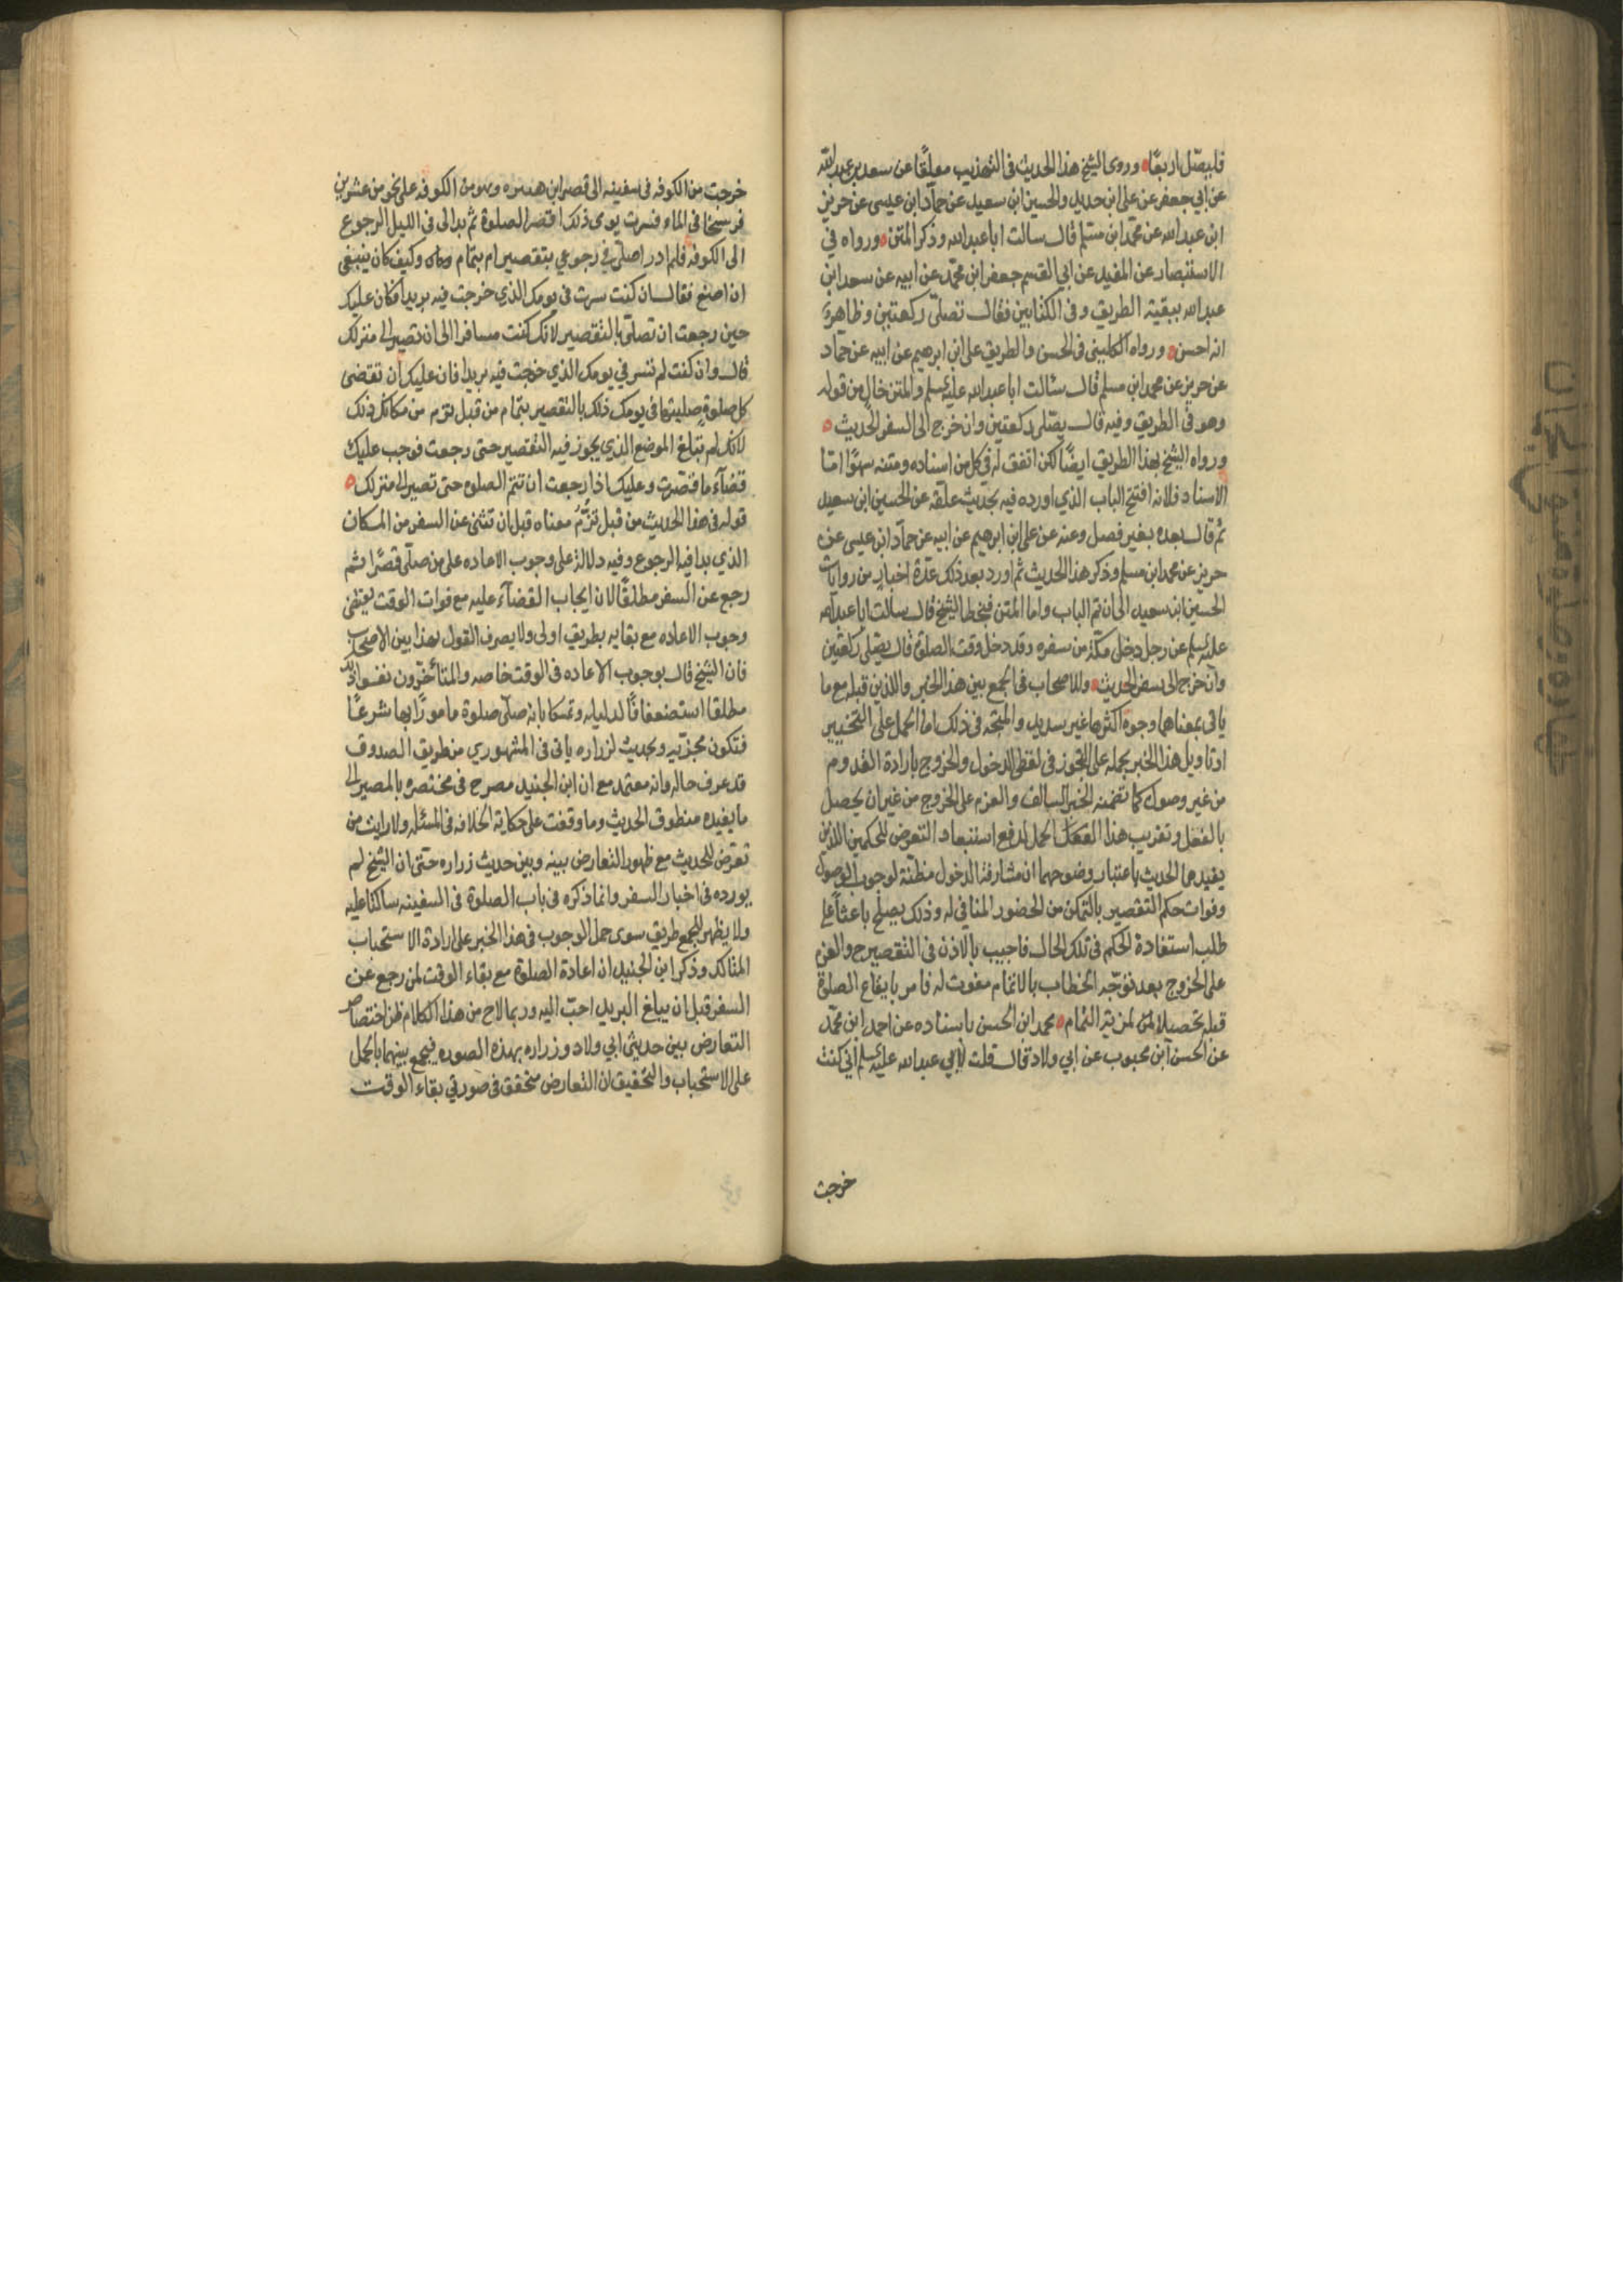 فليصل اربعًا ه وروى الشيخ هذا الحديث فى التهذيب معلقًا عن سعد بن عبد الله
عن ابي جعفر عن على ابن حديد والحسين ابن سعيد عن حماد ابن عيسى عن حريز
ابن عبد الله عن محمد ابن مسلم قال سالت ابا عبد الله وذكر المتن ه ورواه في
الاستبصار عن المفيد عن ابي القسم جعفر ابن محمد عن ابيه عن سعد ابن
عبد الله ببقية الطريق وفى الكتابين فقال تصلى ركعتين وظاهره
انه احسن ه ورواه الكلينى فى الحسن والطريق على ابن ابرهيم عن ابيه عن حماد
عن حريز عن محمد ابن مسلم قال سئالت ابا عبد الله عليه سلم والمتن خال من قوله
وهو فى الطريق وفيه قال يصلى ركعتين وان خرج الى السفر الحديث ه
ورواه الشيخ بهذا الطريق ايضًا لكن اتفق له فى كل من اسناده ومتنه سهوًا امّا
الاسناد فلانه افتتح الباب الذي اورده فيه بحديث علقه عن الحسين ابن سعيد
ثم قال بعده بغير فصل وعنه عن على ابن ابرهيم عن ابيه عن حماد ابن عيسى عن
حريز عن محمد ابن مسلم وذكر هذا الحديث ثم اورد بعد ذلك عدة اخبار من روايات
الحسين ابن سعيد الى ان تم الباب واما المتن فبخط الشيخ قال سالت ابا عبد الله
عليه سلم عن رجل دخل مكة من سفره وقد دخل وقت الصلوة قال يصلى ركعتين
وان خرج الى سفر الحديث ه وللاصحاب فى الجمع بين هذا الخبر واللذين قبله مع ما
ياتى بمعناهما وجوه اكثرها غير سديد والمتجه فى ذلك اما الحمل على التخيير
او تاويل هذا الخبر بحمله على التجوز فى لفظى الدخول والخروج بارادة القدوم
من غير وصول كما تضمنه الخبر السالف والعزم على الخروج من غير ان يحصل
بالفعل وتقريب هذا الحمل لدفع استبعاد التعرض للحكمين اللذين
يفيدهما الحديث باعتبار وضوحهما ان مشارفة الدخول مظنة لوجوب الوصول
وفوات حكم التقصير بالتمكن من الحضور المنافي له وذلك يصلح باعثًا على
طلب استفادة الحكم فى تلك الحال فاجيب بالاذن فى التقصير ح والعزم
على الخروج بعد توجّه الخطاب بالاتمام مفوت له فامر بايقاع الصلوة
قبله تحصيلا لمزية التمام ه محمد ابن الحسن باسناده عن احمد ابن محمد
عن الحسن ابن محبوب عن ابي ولاد قال قلت لابي عبد الله عليه سلم اني كنت
خرجت
خرجت من الكوفه فى سفينه الى قصر ابن هبيره وهو من الكوفه على نحو من عشرين
فرسخًا فى الماء فسرت يومى ذلك اقصر الصلوة ثم بدا لى فى الليل الرجوع
الى الكوفه فلم ادر اصلّى في رجوعي بتقصير ام بتمام وكيف كان ينبغى
ان اصنع فقال ان كنت سرت فى يومك الذي خرجت فيه بريدًا فكان عليك
حين رجعت ان تصلّي بالتقصير لانك كنت مسافرا الى ان تصير الى منزلك
قال وان كنت لم تسر في يومك الذي خرجت فيه بريدا فان عليك ان تقضى
كل صلوةٍ صليتها فى يومك ذلك بالتقصير بتمام من قبل تؤم من مكانك ذلك
لانك لم تبلغ الموضع الذي يجوز فيه التقصير حتى رجعت فوجب عليك
قضآء ما قصّرت وعليك اذا رجعت ان تتم الصلوه حتى تصير الى منزلك ه
قوله فى هذا الحديث من قبل تؤُمّ معناه قبل ان تثنى عن السفر من المكان
الذي بدا فيه الرجوع وفيه دلالة على وجوب الاعاده على من صلّى قصرًا ثم
رجع عن السفر مطلقًا لان ايجاب القضآء عليه مع فوات الوقت يقتضى
وجوب الاعاده مع بقايه بطريق اولى ولا يعرف القول بهذا بين الاصحاب
فان الشيخ قال بوجوب الاعاده فى الوقت خاصه والمتأخّرون نفوا ذلك
مطلقا استضعافًا لدليله وتمسكا بانه صلّى صلوة مامورًا بها شرعًا
فتكون مجزيه وبحديث لزراره ياتى فى المشهوري من طريق الصدوق
قد عرف حاله وانه معتمد مع ان ابن الجنيد مصرح فى مختصره بالمصير الى
ما يفيده منطوق الحديث وما وقفت على حكاية الخلافه فى المسئله ولا رايت من
تعرّض للحديث مع ظهور التعارض بينه وبين حديث زراره حتى ان الشيخ لم
يورده فى اخبار السفر وانما ذكره فى باب الصلوة فى السفينه ساكتا عليه
ولا يظهر للجمع طريق سوى حمل الوجوب فى هذا الخبر على ارادة الاستحباب
المتاكد وذكر ابن الجنيد ان اعادة الصلوة مع بقاء الوقت لمن رجع عن
السفر قبل ان يبلغ البريد احبّ اليه وربما لاح من هذا الكلام ظن اختصاص
التعارض بين حديثي ابي ولاد وزراره بهذه الصوره فيجمع بينهما بالحمل
على الاستحباب والتحقيق ان التعارض متحقق فى صورتي بقاء الوقت